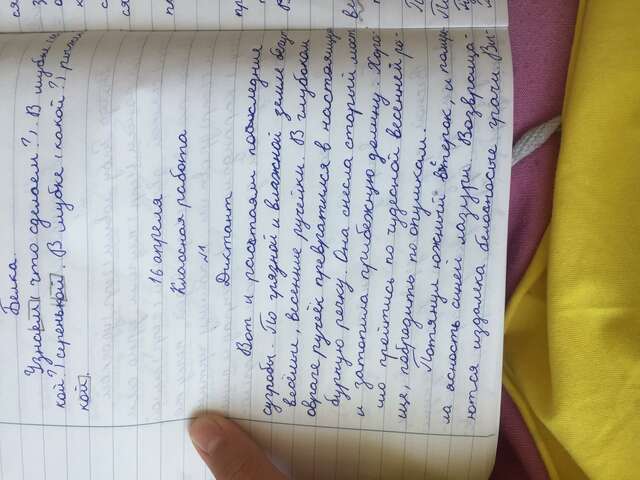 Белка.
Узнаём что сделаем?, В шубке
кой? серенькой. В шубке (какой?)
кой
16 апреля
Классная работа
Диктант
Вот и растаяли последние
сугробы. По грязной и влажной земле
весёлые, весенние ручейки. В глубоком
овраге ручеёк превратился в настоящую
бурную речку. Она снесла старый мост
и затопила прибежную долину. Хоро-
шо пройтись по чудесной весенней ро-
ще, побродить по опушкам.
Потянул южный ветерок, и
ла ясность синей лазури. Возвраща-
ются издалека белоносые грачи